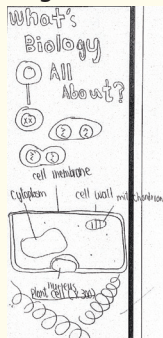 What's
Biology
All
About?
cell membrane
Cytoplasm cell wall mitochondrion
nucleus
plant cell (x 300)